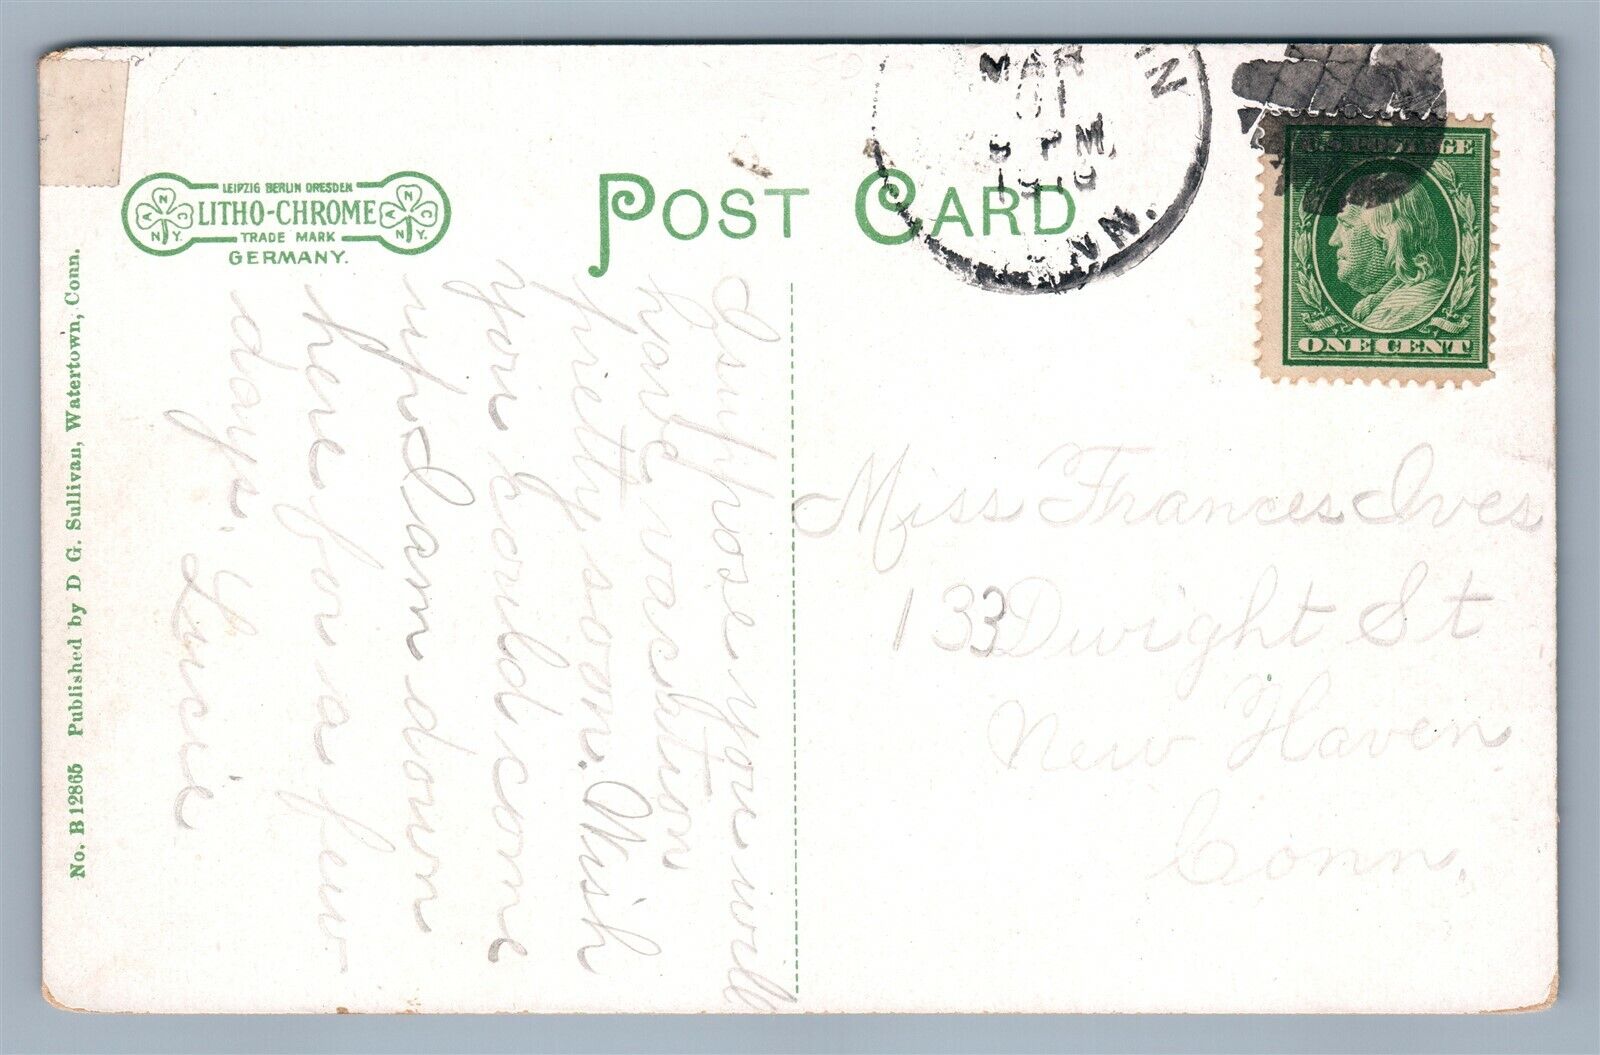 LEIPZIG BERLIN DRESDEN
LITHO-CHROME
TRADE MARK
GERMANY.
A N C
N.Y.
A N C
N.Y.
POST CARD
MAR
01
8 PM
1910
NN.
U.S. POSTAGE
ONE CENT
No. B 12865 Published by D. G. Sullivan, Watertown, Conn.
I suppose you will
have vacation
pretty soon. Wish
you could come
up
down
here for a few
days. Lucie
Miss Frances Ives
133 Dwight St
New Haven
Conn.